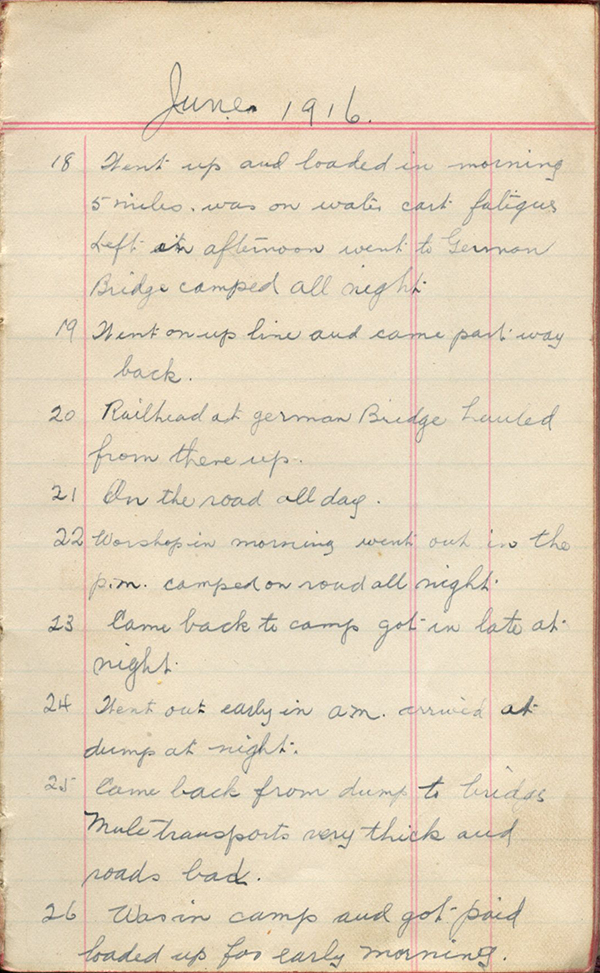 June 1916.
18 Went up and loaded in morning
5 miles. was on water cart fatigue
Left in afternoon went to German
Bridge camped all night
19 Went on up line and came part way
back.
20 Railhead at german Bridge hauled
from there up.
21 On the road all day.
22 Worshop in morning went out in the
p.m. camped on road all night
23 Came back to camp got in late at
night.
24 Went out early in a.m. arrived at
dump at night.
25 Came back from dump to bridge
Mule transports very thick and
roads bad.
26 Was in camp and got paid
loaded up for early morning.